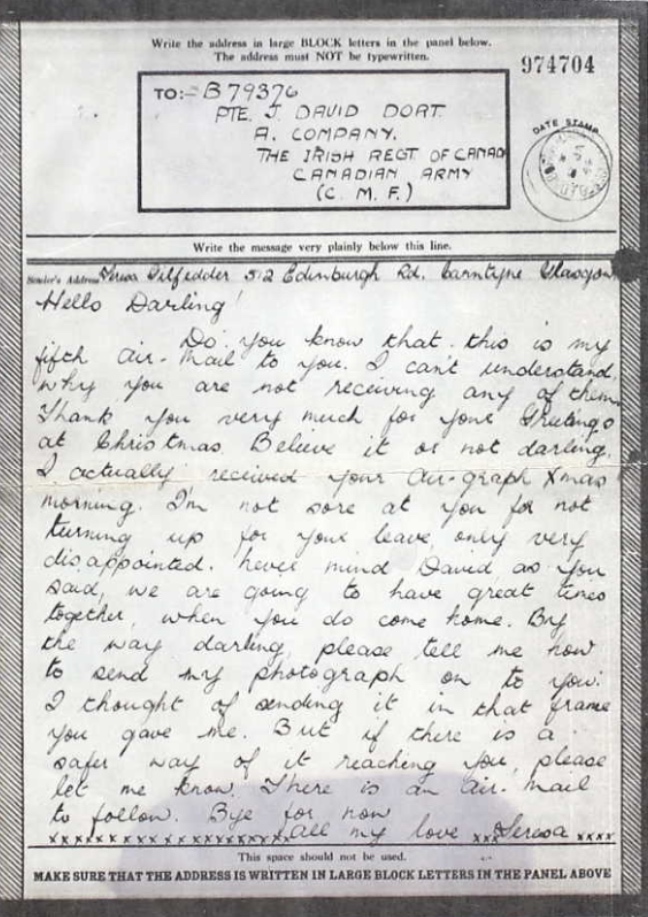 Write the address in large BLOCK letters in the panel below.
The address must NOT be typewritten.
974704
TO:- B79376
PTE. J. DAVID DORT
A. COMPANY.
THE IRISH REGT OF CANAD
CANADIAN ARMY
(C. M. F.)
DATE STAMP
Write the message very plainly below this line.
Sender's Address Teresa Gilfedder 512 Edinburgh Rd. Carntyne Glasgow
Hello Darling!
Do you know that this is my
fifth air-mail to you. I can't understand
why you are not receiving any of them.
Thank you very much for your Greetings
at Christmas. Believe it or not darling,
I actually received your air-graph Xmas
morning. I'm not sore at you for not
turning up for your leave, only very
disappointed. Never mind David, as you
said, we are going to have great times
together, when you do come home. By
the way darling, please tell me how
to send my photograph on to you.
I thought of sending it in that frame
you gave me. But if there is a
safer way of it reaching you, please
let me know. There is an air-mail
to follow. Bye for now
xxxxxxxxxxxxxxxxxxxx All my love xxx Teresa xxxx
This space should not be used.
MAKE SURE THAT THE ADDRESS IS WRITTEN IN LARGE BLOCK LETTERS IN THE PANEL ABOVE